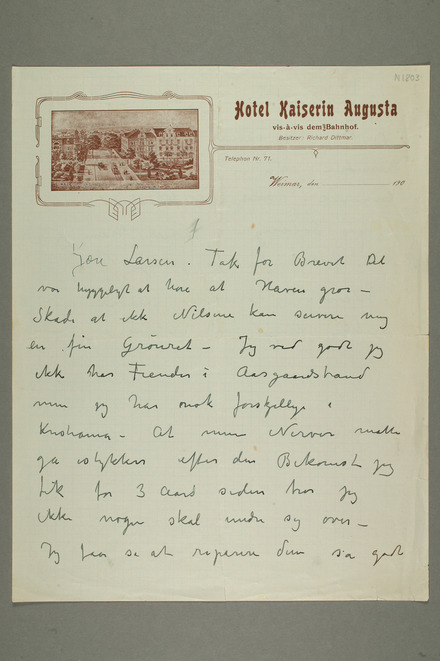 N1803
Hotel Kaiserin Augusta
vis-à-vis dem Bahnhof.
Besitzer: Richard Dittmar.
Telephon Nr. 71.
Weimar, den 190
1
Kjære Larsen. Tak for Brevet Det
var hyggeligt at høre at Haven gror –
Skade at ikke Nilsine kan servere mig
en fin Grönret – Jeg ved godt jeg
ikke har Fiender i Aasgaardstrand
men jeg har nok forskjellige i
Kristiania – At mine Nerver måtte
gå istykker efter den Bekomst jeg
fik for 3 Aar siden tror jeg
ikke nogen skal undre sig over –
Jeg faar se at reparere dem saa godt